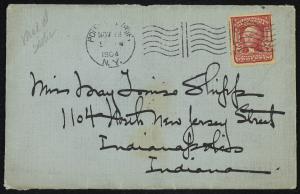 NOV
1904
N.Y.
Miss May Louise Shipp
1104 North New Jersey Street
Indianapolis
Indiana